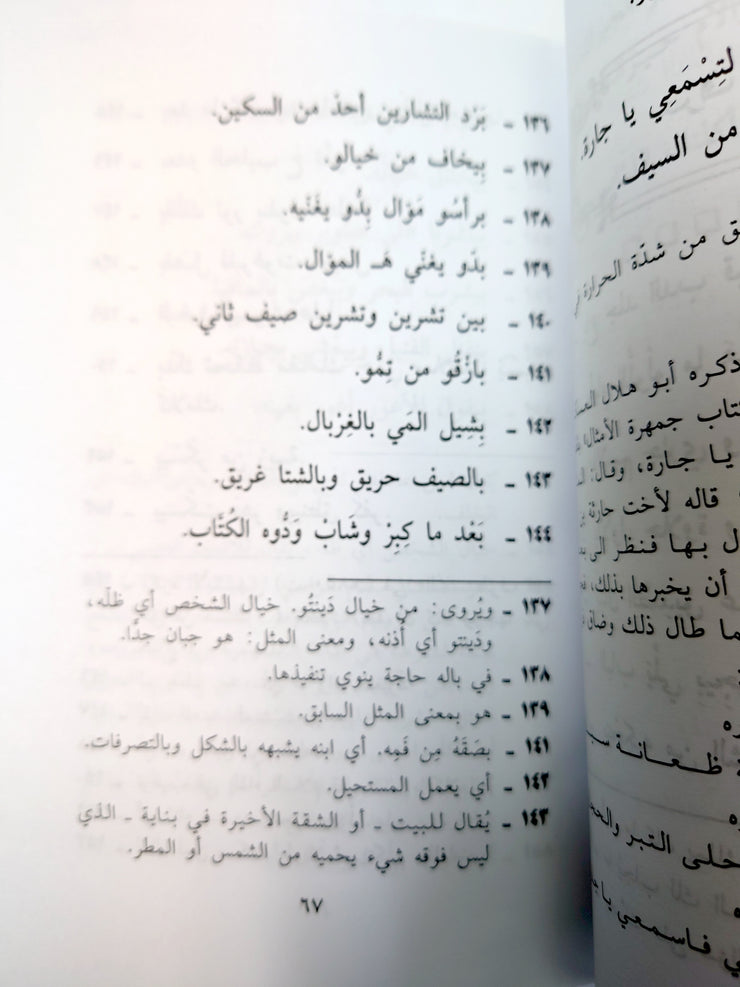 لتِسْمَعِي يا جارة.
من السيف.
من شدّة الحرارة
ذكره أبو هلال
جمهرة الأمثال
يا جارة، وقال:
قاله لأخت حارثة
بها فنظر الى
أن يخبرها بذلك،
طال ذلك وضاق
ظعانة
التبر
فاسمعي يا
١٣٦ - بَرْد التشارين أحدّ من السكين.
١٣٧ - بِيخاف من خيالو.
١٣٨ - براسُو مَوّال بِدُّو يغَنّيه.
١٣٩ - بدّو يغنّي هَـ الموّال.
١٤٠ - بين تشرين وتشرين صيف ثاني.
١٤١ - بازْقُو من تِمُّو.
١٤٢ - بِشِيل المَي بالغِرْبال.
١٤٣ - بالصيف حريق وبالشتا غريق.
١٤٤ - بَعْد ما كِبِرْ وشَابْ وَدُّوه الكُتّاب.
١٣٧ - ويُروى: من خيال دَينتُو. خيال الشخص أي ظلّه،
ودَينتو أي أُذنه، ومعنى المثل: هو جبان جدًّا.
١٣٨ - في باله حاجة ينوي تنفيذها.
١٣٩ - هو بمعنى المثل السابق.
١٤١ - بصَقَهُ مِن فَمِه. أي ابنه يشبهه بالشكل وبالتصرفات.
١٤٢ - أي يعمل المستحيل.
١٤٣ - يُقال للبيت - أو الشقة الأخيرة في بناية - الذي
ليس فوقه شيء يحميه من الشمس أو المطر.
٦٧